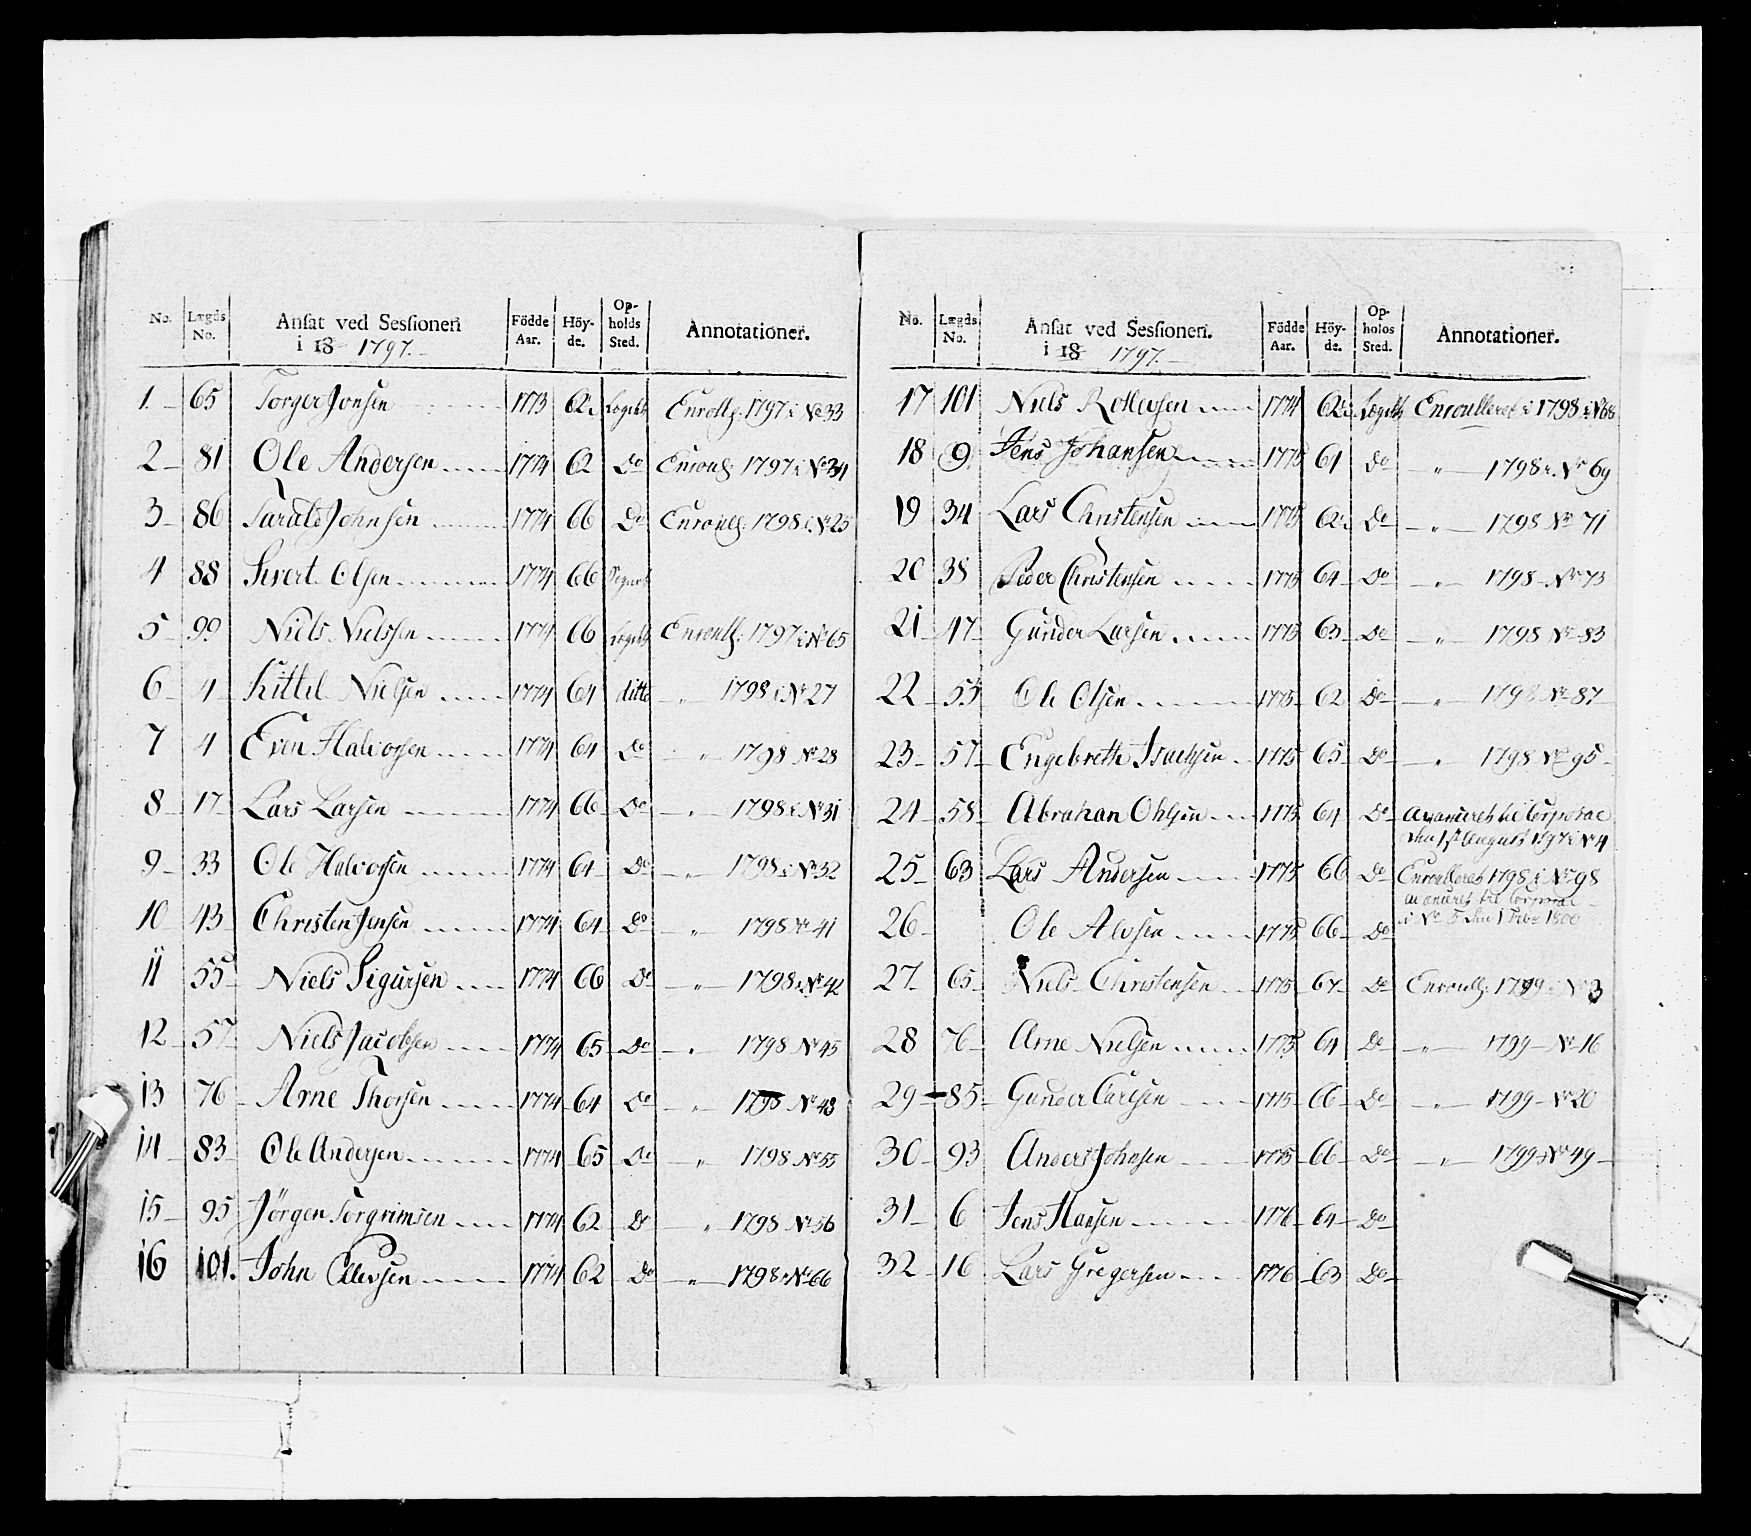 No. Lægds No. Ansat ved Sessionen i 18 1797. Födde Aar. Höyde. Opholds Sted. Annotationer.
1. 65 Torger Jonsen 1773 62½ Lægdet Enroull: 1797 i No 33
2 81 Ole Andersen 1774 62 Do Enroul: 1797 i No 34
3 86 Johnsen 1774 66 Do Enroull: 1798 i No 25
4 88 Sivert Olsen 1774 66
5 99 Niels Nielsen 1774 66 Lægdet Enroull: 1797 i No 65
6 4 Kittel Nielsen 1774 64 ditto — " — 1798 i No 27
7 4 Even Halvorsen 1774 64 Do " 1798 No 28
8 17 Lars Larsen 1774 66 Do — " — 1798 i No 31
9 33 Ole Halvorsen 1774 64 Do — " — 1798 i No 32
10 43 Christen Jensen 1774 64 Do — " — 1798 No 41
11 55 Niels Sigursen 1774 66 Do — " — 1798 i No 42
12 57 Niels Jacobsen 1774 65 Do — " — 1798 No 45
13 76 Arne Thorsen 1774 64 Do — " — 1798 No 48
14 83 Ole Andersen 1774 65 Do — " — 1798 No 55
15 95 Jörgen Torgrimsen 1774 62 Do " 1798 No 56
16 101. John Ellevsen 1774 62 Do — " — 1798 i No 66
No. Lægds No. Ansat ved Sessionen. i 18 1797. Födde Aar. Höyde. Opholds Sted. Annotationer.
17 101 Niels Rollevsen 1774 62½ Lægdet Enroulleret i 1798 i No 68
18 9 Jens Johansen 1775 61 Do — " — 1798 i No 69
19 34 Lars Christensen 1775 62½ Do — " — 1798 No 71
20 38 Peder Christensen 1775 64 Do — " — 1798 No 73
21 47 Gunder Larsen 1775 63 Do — " — 1798 No 83
22 55 Ole Olsen 1775 62 Do — " — 1798 No 87
23 57 Engebreth Isachsen 1775 65 Do — " — 1798 No 95
24 58 Abrahan Ohlsen 1775 64 Do avanceret til Corporal
den 1st August 1797 i No 4
25 63 Lars Andersen 1775 66 Do Enroulleret 1798 i No 98
avanceret til Corporal
i No 5 den 1 Febr 1800
26 Ole Alvsen 1775 66 Do
27 65 Niels Christensen 1775 67 Do Enroull: 1799 i No 3
28 76 Arne Nielsen 1775 64 Do — " — 1799 No 16
29 85 Gunder Carlsen 1775 66 Do — " — 1799 No 20
30 93 Anders Johnsen 1775 66 Do — " — 1799 i No 49
31 6 Jens Hansen 1776 64 Do
32 16 Lars Gregersen 1776 63 Do